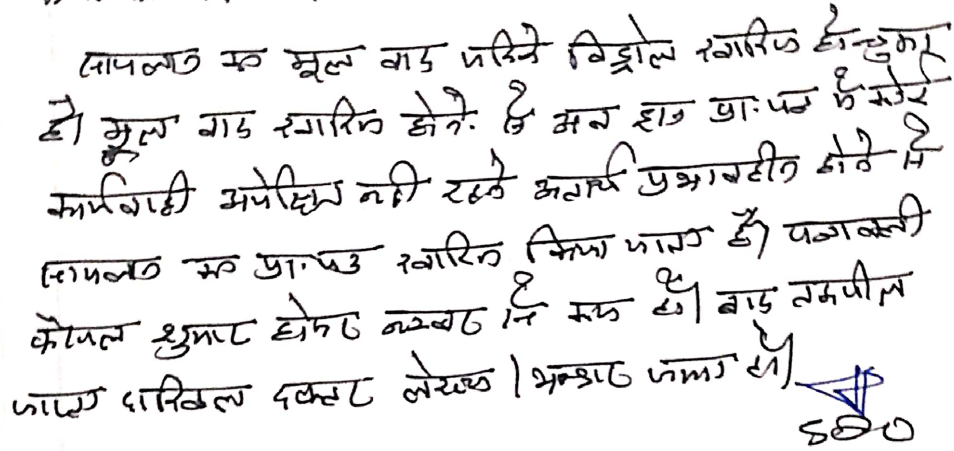 सायलान का मूल वाद पहिले विड्रोल खारिज हो चुका
है। मूल वाद खारिज होने से अब इस प्रा. पत्र में कोई
कार्यवाही अपेक्षित नही रहने अतएव प्रभावहीन होने से
सायलान का प्रा. पत्र खारिज किया जाता है। पत्रावली
फैसल शुमार होकर नम्बर से कम हो। बाद तकमील
जाप्ता दाखिल दफ्तर लेखक / भण्डार जमा हो।
SDO